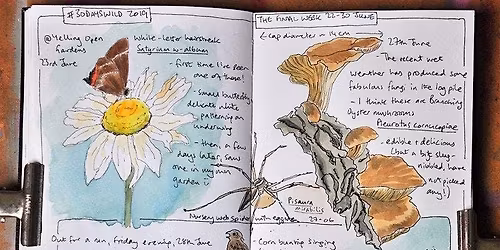 #30DAYSWILD 2019
@Yelling Open
Gardens
23rd June
White-letter hairstreak
Satyrium w-album
- first time I've seen
one of these!
- small butterfly,
delicate white
patterning on
underwing
- then, a few
days later, saw
one in my own
garden :)
Nursery web spider with eggsac
Out for a run, Friday evening, 28th June
THE FINAL WEEK 22-30 JUNE
<cap diameter ~ 14cm>
27th June
- The recent wet
weather has produced some
fabulous fungi in the log pile
- I think these are Branching
Oyster mushrooms
Pleurotus cornucopiae
- edible + delicious
(but a bit slug-
nibbled, have
not picked
any!)
Pisaura
mirabilis
27-06
- Corn bunting singing